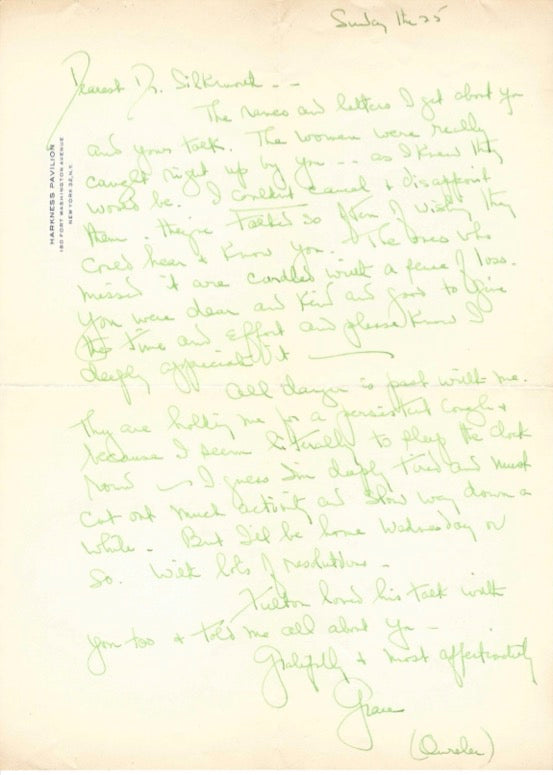 Sunday the 25
HARKNESS PAVILION
180 FORT WASHINGTON AVENUE
NEW YORK 32, N.Y.
Dearest Dr. Silkworth - -
The raves and letters I get about you
and your talk. The women were really
caught right up by you - - as I knew they
would be. I couldn't cancel + disappoint
them. They've talked so often of wishing they
could hear + know you. The ones who
missed it are candles with a sense of loss.
You were dear and kind and good to give
the time and effort and please know I
deeply appreciate it —
All danger is past with me.
They are holding me for a persistent cough +
because I seem literally to sleep the clock
round — I guess I'm deeply tired and must
cut out much activity and slow way down a
while. But I'll be home Wednesday or
so. With lots of resolutions -
Fulton loved his talk with
you too + told me all about you -
Gratefully + most affectionately
Grace
(Oursler)